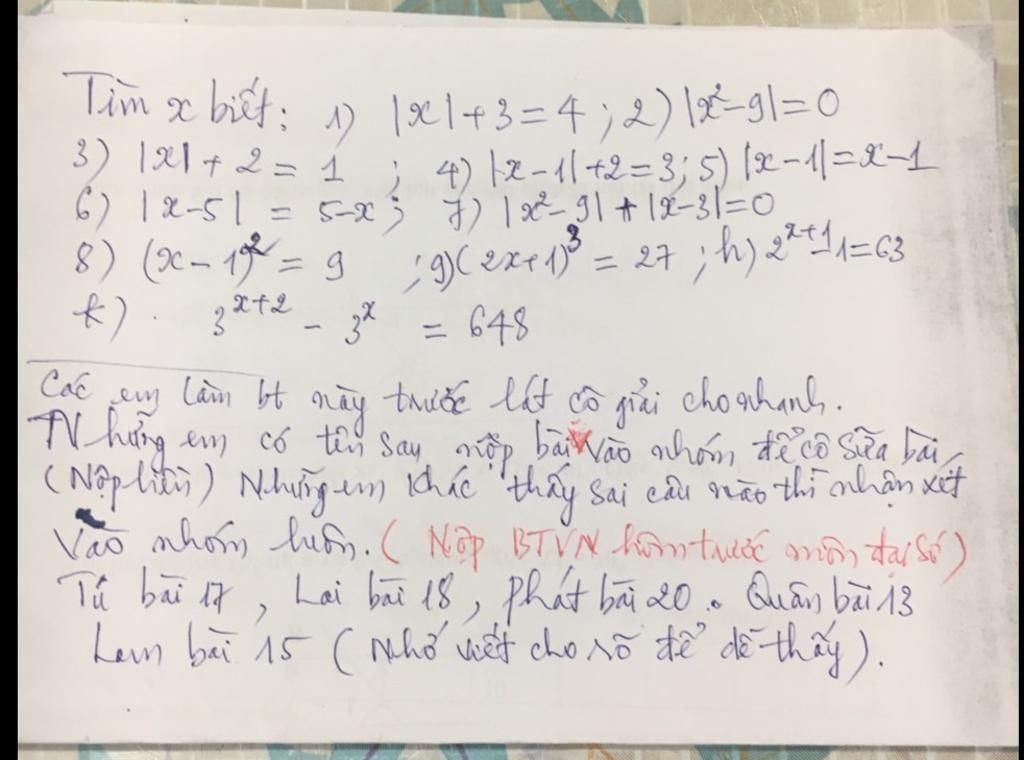 Tìm x biết: 1) |x| + 3 = 4 ; 2) |x² - 9| = 0
3) |x| + 2 = 1 ; 4) |x - 1| + 2 = 3 ; 5) |x - 1| = x - 1
6) |x - 5| = 5 - x ; 7) |x² - 9| + |x - 3| = 0
8) (x - 1)² = 9 ; 9) (2x + 1)³ = 27 ; h) 2^{x+1} - 1 = 63
k) 3^{x+2} - 3^x = 648
Các em làm bt này trước lát cô giải cho nhanh.
Những em có tên sau nộp bài vào nhóm để cô sửa bài
(Nộp liền) Những em khác thấy sai câu nào thì nhận xét
vào nhóm luôn. (Nộp BTVN hôm trước môn đại số)
Tú bài 17, Lai bài 18, Phát bài 20. Quân bài 13
Lam bài 15 (Nhớ viết cho rõ để dễ thấy).